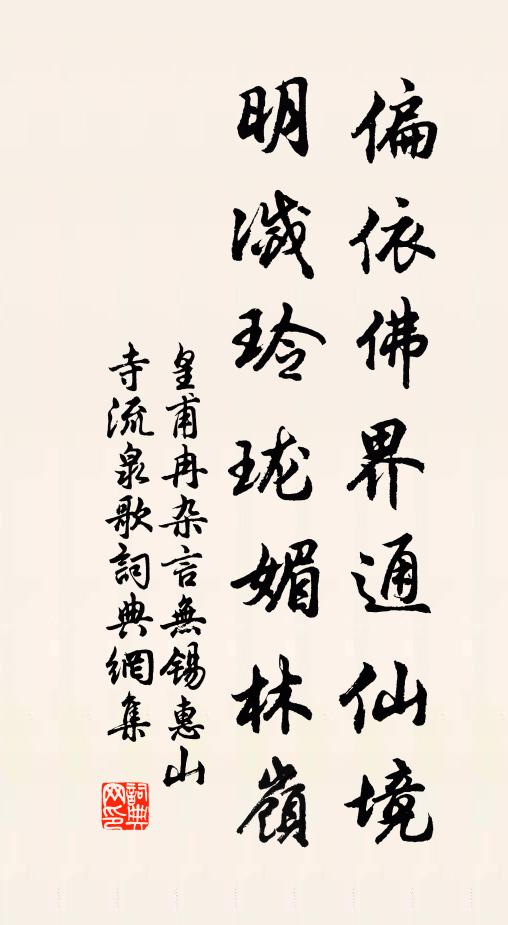 偏依佛界通仙境
明滅玲珑媚林嶺
皇甫冉杂言無锡惠山
寺流泉歌詞典網集
詞典网印